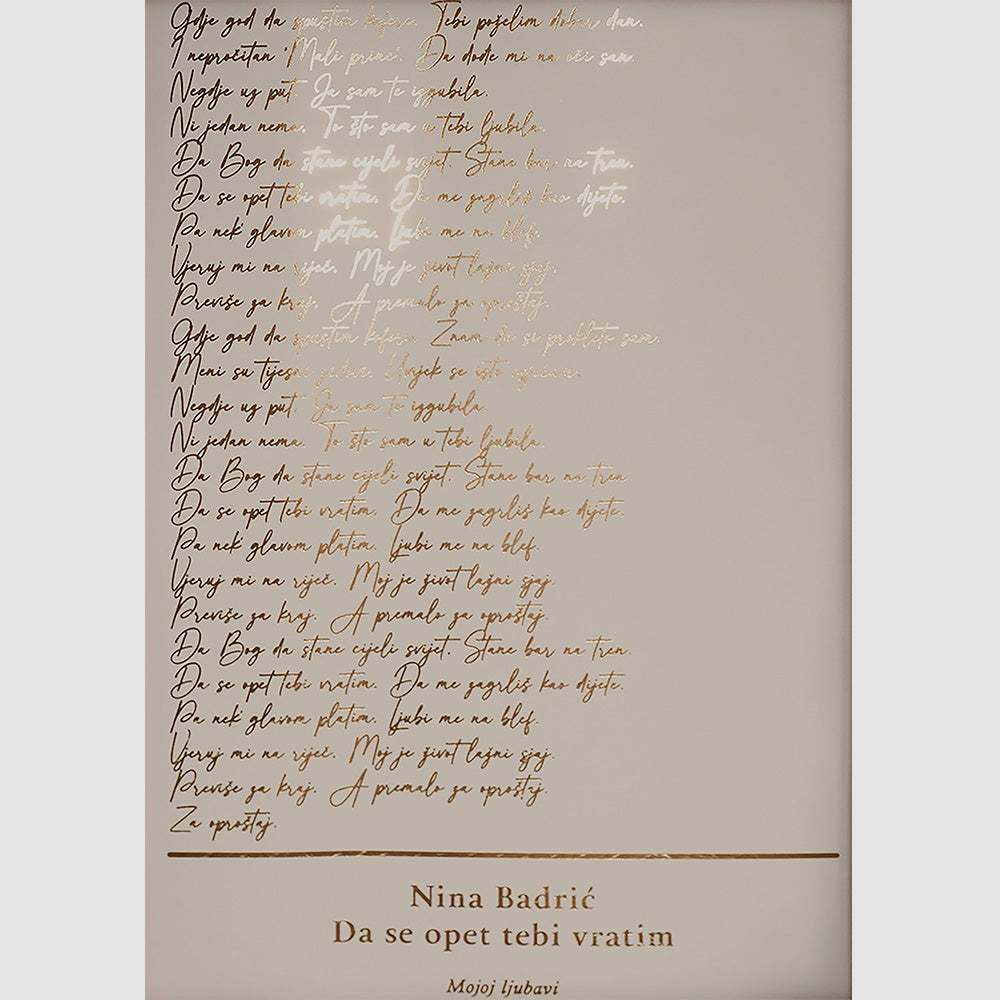 Gdje god da spustim kofere. Tebi poželim dobar dan.
I nepročitan 'Mali princ'. Da dođe mi na oči san.
Negdje uz put. Ja sam te izgubila.
Ni jedan nema. To što sam u tebi ljubila.
Da Bog da stane cijeli svijet. Stane bar na tren.
Da se opet tebi vratim. Da me zagrliš kao dijete.
Pa nek' glavom platim. Ljubi me na blef.
Vjeruj mi na riječ. Moj je život lažni sjaj.
Previše za kraj. A premalo za oproštaj.
Gdje god da spustim kofere. Znam da si prokleto sam.
Meni su tijesni zidovi. Uvijek se isto osjećam.
Negdje uz put. Ja sam te izgubila.
Ni jedan nema. To što sam u tebi ljubila.
Da Bog da stane cijeli svijet. Stane bar na tren.
Da se opet tebi vratim. Da me zagrliš kao dijete.
Pa nek' glavom platim. Ljubi me na blef.
Vjeruj mi na riječ. Moj je život lažni sjaj.
Previše za kraj. A premalo za oproštaj.
Da Bog da stane cijeli svijet. Stane bar na tren.
Da se opet tebi vratim. Da me zagrliš kao dijete.
Pa nek' glavom platim. Ljubi me na blef.
Vjeruj mi na riječ. Moj je život lažni sjaj.
Previše za kraj. A premalo za oproštaj.
Za oproštaj.
Nina Badrić
Da se opet tebi vratim
Mojoj ljubavi